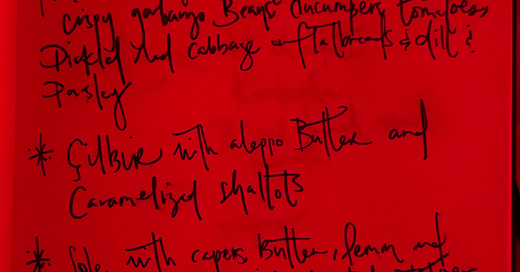 crispy garbanzo Beans Cucumbers, tomatoes,
Pickled Red Cabbage flatbreads & dill &
Parsley
* Çılbır with aleppo Butter and
Caramelized shallots
* Sole with capers, Butter, lemon and